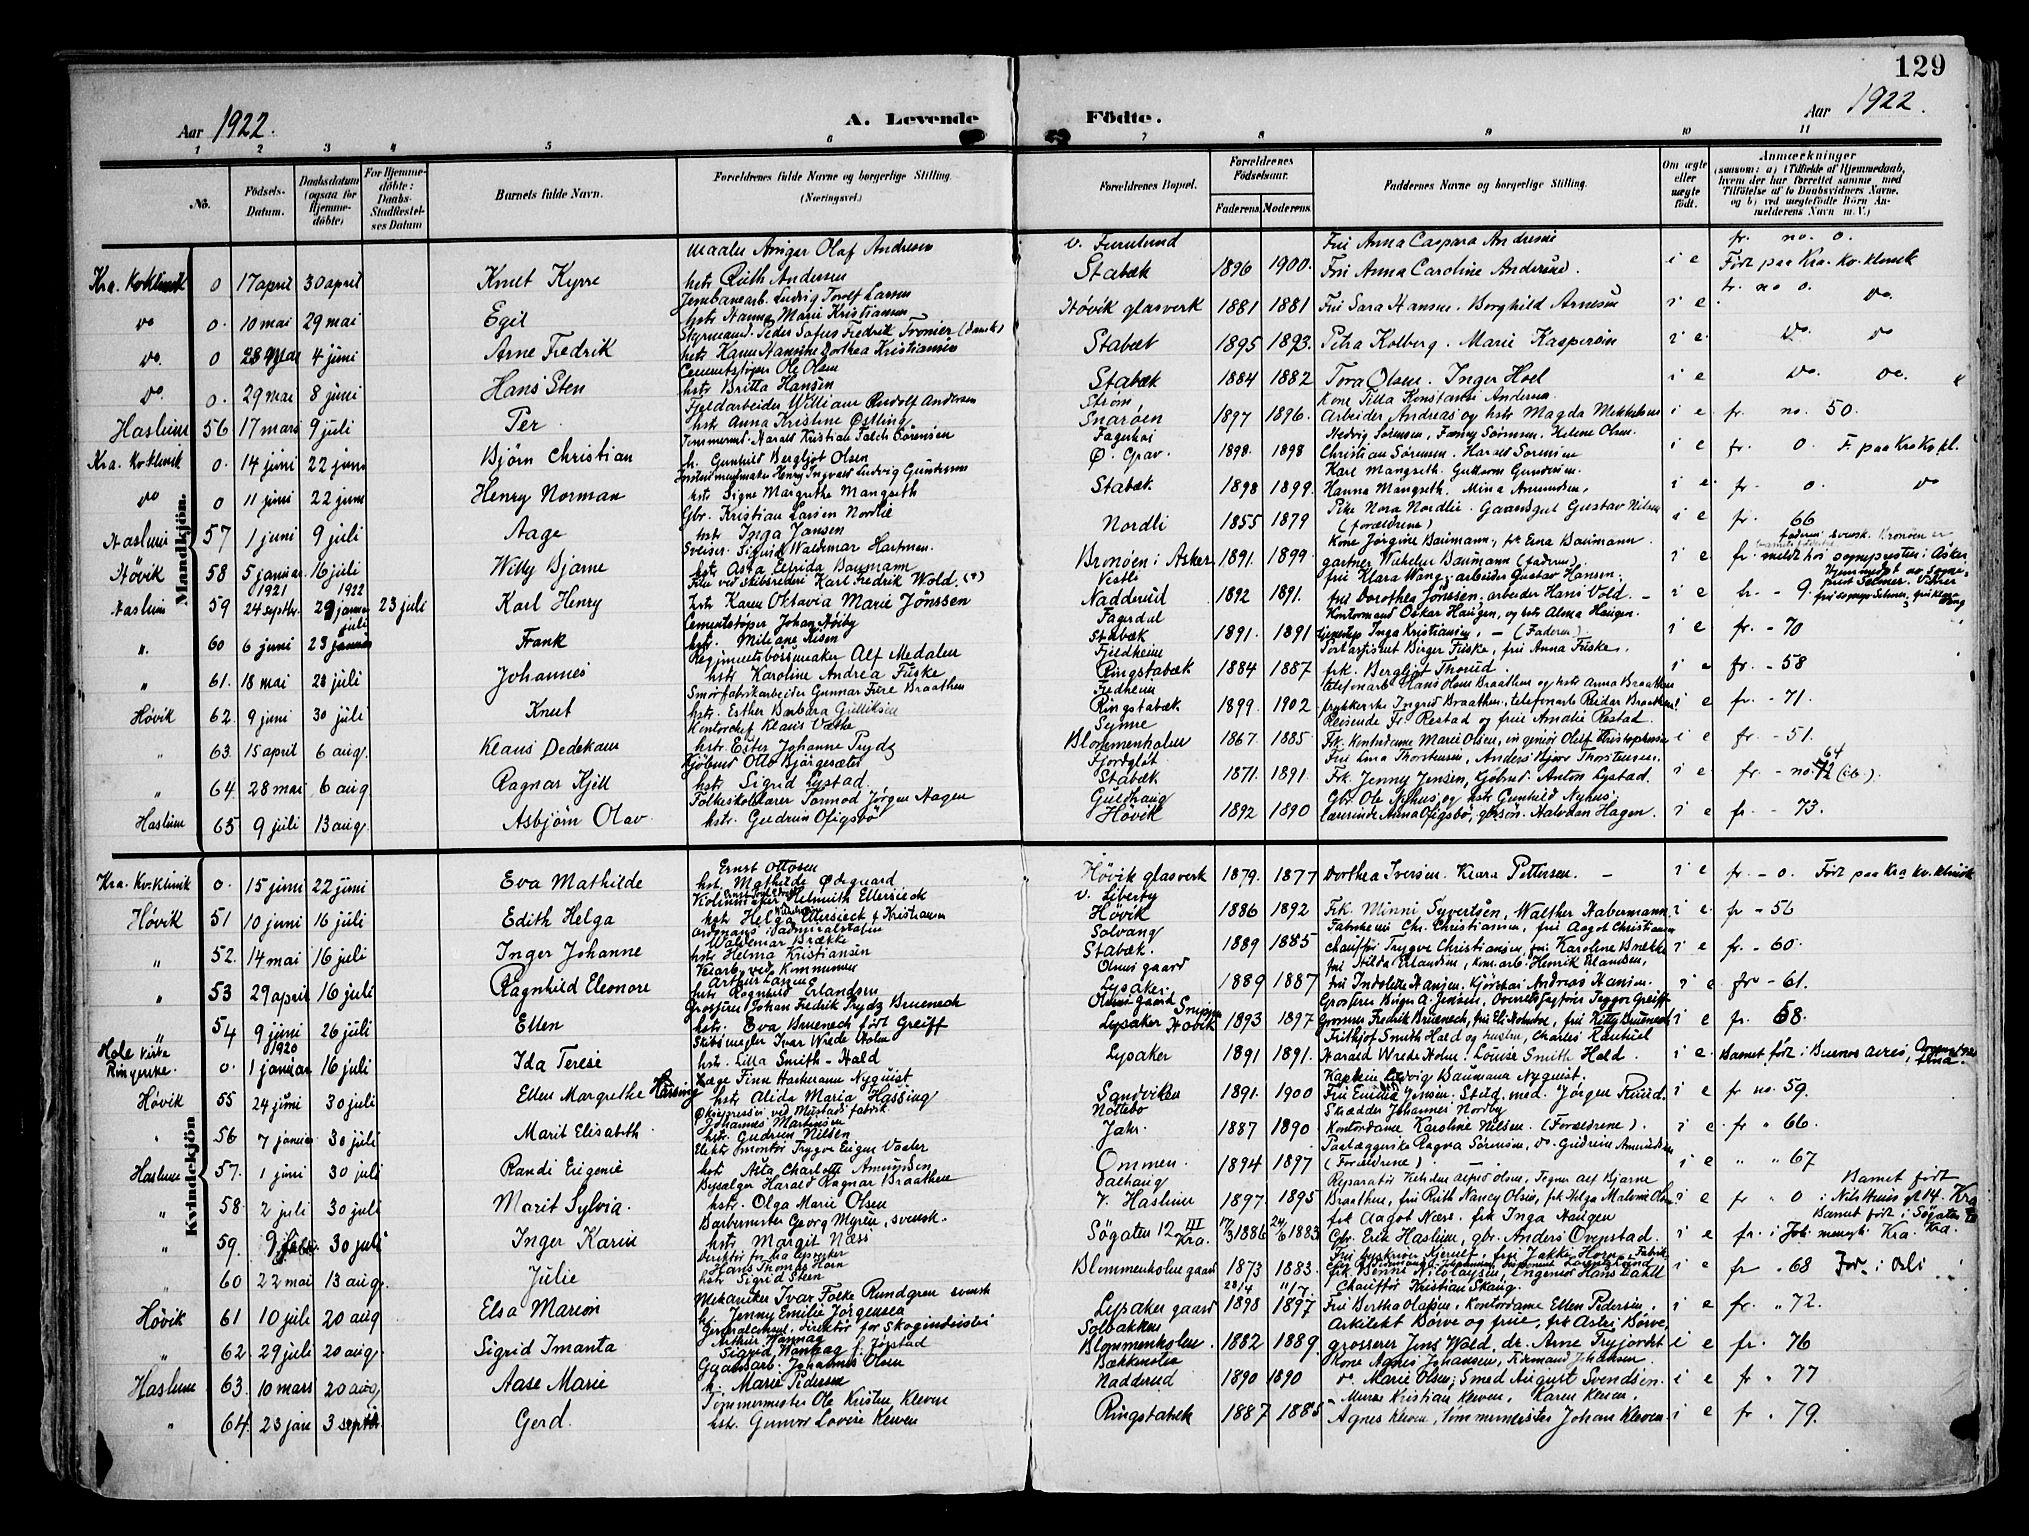 129
Aar 1922.
A. Levende Födte.
Aar 1922.
1 2 3 4 5 6 7 8 9 10 11
No.
Födsels-Datum.
Daabsdatum (ogsaa for Hjemme-döbte)
For Hjemme-döbte: Daabs-Stadfæstelses Datum
Barnets fulde Navn.
Forældrenes fulde Navne og borgerlige Stilling. (Næringsvei.)
Forældrenes Bopæl.
Forældrenes Födselsaar.
Faderens. Moderens.
Faddernes Navne og borgerlige Stilling.
Om ægte eller uægte födt.
Anmærkninger
(saasom: a) i Tilfælde af Hjemmedaab, hvem der har forrettet samme med Tilföielse af to Daabsvidners Navne, og b) ved uægtefödte Börn Anmelderens Navn m. V.)
Mandkjön.
Maaler Ansgar Olaf Andresen v. Furulund Fru Anna Caspara Andresen fr. no. 0.
Kra. Kv.klinik 0 17 april 30 april Knut Kyrre hstr Ruth Andersen Stabæk 1896 1900. Fru Anna Caroline Andersen. i e Født paa Kra. kv. klinik
Jernbanearb. Ludvig Torolf Larsen fr. no 0.
do 0. 10 mai 29 mai Egil hstr Nanna Marie Kristiansen Høvik glasverk 1881 1881 Fru Sara Hansen. Borghild Arnesen i e do.
Styrmand. Peder Sofus Fredrik Tronier (dansk)
do. 0 28 mai 4 juni Arne Fredrik hstr Hanna Dorthea Kristiansen Stabæk 1895 1893. Petra Kolberg. Marie Kaspersen i e. do. do
Cementstøper Ole Olsen
do 0. 29 mai 8 juni Hans Sten hstr Britta Hansen Stabæk 1884 1882 Tora Olsen. Inger Hoel i e do. do.
Fjeldarbeider William Rudolf Andersen Strøm Kone Tilla Konstanse Andersen.
Haslum 56 17 mars 9 juli Per hstr Anna Kristine Østling Snarøen 1897 1896. arbeider Andreas og hstr Magda Mikkelsen i e. fr. no. 50.
Tømmermd. Harald Kristian Falch Sørensen Fagerhøi Hedvig Sørensen, Fanny Sørensen, Helene Olsen.
Kra. Kv.klinik 0. 14 juni 22 juni Björn Christian h. Gunhild Bergljot Olsen Ø. Grav 1898. 1898 Christian Sørensen. Harald Sørensen i e fr. 0. F. paa Kra Kv. kl.
Instrumentmaker Henry Ingvald Ludvig Gundersen Karl Mangseth. Guttorm Gundersen.
do 0 11 juni 22 juni Henry Norman hstr. Signe Margrethe Mangseth Stabæk. 1898 1899. Hanna Mangseth. Mina Amundsen, i e. fr. 0. do
Gbr. Kristian Larsen Nordlie Pike Nora Nordlie. Gaardsgut Gustav Nilsen
Haslum 57 1 juni 9 juli Aage hstr. Inga Jansen Nordli 1855 1879 (forældrene) i e fr. 66
Sveiser. Sigurd Waldemar Hartman. Kone Jørgine Baumann, frk Erna Baumann
Høvik 58 5 januar 16 juli Willy Bjarne hstr. Asta Elfrida Baumann Bronøen i Asker 1891. 1899. gartner Wilhelm Baumann (faderen). i e fr. meldt hos sognepresten i Asker
1921 1922 Frk. ved skibsrederi Karl Fredrik Wold. Vestli fru Klara Wang. arbeider Gustav Hansen;
Haslum 59 24 septbr. 29 januar 23 juli Karl Henry hstr. Karen Oktavia Marie Jönssen Nadderud 1892 1891. fru Dorothea Jönssen. arbeider Hans Wold. i e fr. - 9.
juli Cementstøper Johan Høiby Fagerdal Kontormand Oskar Haugen, og hstr Alma Haugen.
" 60 6 juni 23 Frank hstr. Miliane Risen Stabæk 1891. 1891 Inga Kristiansen, - (Faderen). i e fr. - 70
Regimentsbøssemaker Alf Medalen Fjeldheim Portartisnt Birger Fuske, fru Anna Fuske.
" 61. 18 mai 23 juli Johannes hstr. Karoline Andrea Fuske Ringstabæk 1884 1887 frk. Bergljot Thorud. i e fr. - 58
Smørfabrikarbeider Gunnar Braathen Fredheim telefonarb Hans Olsen Braathen og hstr Anna Braathen
Høvik 62. 9 juni 30 juli Knut hstr. Esther Barbara Gulliksen Ringstabæk 1899. 1902 Ingrid Braathen, telefonarb Reidar Braathen i e fr. - 71.
Kontorchef Klaus Vathe Symre Reisende Fr Restad og frue Amalie Restad.
" 63. 15 april 6 aug. Klaus Dedekam hstr. Ester Johanne Trydz Blommenholm 1867. 1885. Frk. Kontordame Marie Olsen, ingeniør Olaf Christophersen i e fr. - 51.
Kjøbmd Otto Bjørgesæter Fjordgløt Fru Lina Thorstensen, Anders Bjørn Thorstensen.
" 64. 28 mai 6 aug. Ragnar Kjell hstr. Sigrid Lystad. Stabæk 1871. 1891. Frk. Jenny Jensen, Kjøbmd. Anton Lystad. i e. fr. - no. 64
Folkeskolelærer Tormod Jörgen Hagen Guldhaug Gbr. Ole Nyhus, og hstr Gunhild Nyhus.
Haslum 65 9 juli 13 aug. Asbjörn Olav hstr. Gudrun Ofigsbö Høvik 1892 1890 Lærerinde Anna Ofigsbö, gbrsøn. Halvdan Hagen. i e fr. - 73.
Kvindekjön
Ernst Ottosen
Kra. Kv.klinik 0. 15 juni 22 juni Eva Mathilde hst. Mathilde Ødegaard Høvik glasverk 1879. 1877 Dorthea Iversen. Klara Pettersen. - i e fr. - 0. Født paa Kra kv. klinik
Helmuth Ellersieck v. Liberty
Høvik 51 10 juni 16 juli Edith Helga hstr Helga Ellersieck f. Kristiansen Høvik 1886 1892 Frk. Minni Syvertsen, Walther Habermann i e. fr - 56
Ordonans i admiralstaben Waldemar Brække Solvang Fabrikeier Chr. Christiansen, fru Aagot Christiansen
" 52. 14 mai 16 juli Inger Johanne hstr Helma Kristiansen Stabæk. 1889 1885 Chauffør Trygve Christiansen fru Karoline Brække i e. fr. - 60.
Veiarb. ved kommunen Arthur Olsens gaard fru Hilda Erlandsen, Kom. arb. Henrik Erlandsen,
" 53 29 april 16 juli Ragnhild Eleonore hstr Ragnhild Erlandsen Lysaker 1889 1887 fru Indolette Hansen. Kjørekar Andreas Hansen. i e fr - 61.
Grosserer Johan Fredrik Trydz Bruenech Olsens gaard Grosserer Birger A. Jensen, Overretssagfører Trygve Greiff
" 54 9 juni 26 juli Ellen hstr. Eva Bruenech født Greiff Lysaker Høvik 1893 1897 Grosserer Fredrik Bruenech, fru Eli Holmboe, fru Kitty Bruenech i e fr. 68.
Hole kirke Ringerike. 1920 Skibsmegler Ivar Wrede Holm Frithjof Smith Hald og hustru, Charles Hauthuil
0. 1 januar 16 juli Ida Terese hstr. Lilla Smith-Hald Lysaker 1891 1891. Harald Wrede Holm. Louise Smith Hald. i e. Barnet født i Buenos aires, Argentina
Læge Finn Harkmann Nyquist Kaptein Ludvig Baumann Nyquist.
Høvik 55 24 juni 30 juli Ellen Margrethe Hassing hstr Alida Maria Hassing Sandviken 1891. 1900 Fru Emilie Jensen. Stud. med. Jörgen Ruud. i e fr no. 59.
ved Mustads fabrik Johannes Martinsen Nøttebo Skrædder Johannes Nordby
" 56 7 januar 30 juli Marit Elisabeth hstr. Gudrun Nilsen Jahr. 1887 1890 Kontordame Karoline Nilsen. (Forældrene). i e fr " 66
Elektr. montør Trygve Eugen Vaaler Ragna Sørensen, do. Gudrun Amundsen
Haslum 57. 1 juni 30 juli Randi Eugenie hstr. Asta Charlotte Amundsen Ommen. 1894 1897 (Forældrene). - i e " " 67
Bysælger Harald Ragnar Braathen Dalhaug Reparatør Alfred Olsen, Tegner Alf Bjarne Barnet født
" 58. 2 juli 30 juli Marit Sylvia. hstr. Olga Marie Olsen V. Haslum 1897. 1895 Braathen, fru Ruth Nancy Olsen, frk Helga Malvine Olsen i e fr " 0 i Nils Huus gt 14. Kra
Barbermester Georg Myren, svensk. frk Aagot Næss. frk Inga Haugen Barnet født i Søgaten
" 59. 9 30 juli Inger Karin hstr Margit Næss Søgaten 12 III Kra. 17/3 1886 24/6 1883 Gbr. Erik Haslum, gbr. Anders Ovenstad. i e fr. Kra.
Direktør Hans Thomas Horn fru Jakke Horn
" 60 22 mai 13 aug. Julie hstr Sigrid Steen Blommenholm gaard 1873 1883. Ingeniør Hans Dahll i e fr " 68 i Oslo
Mekaniker Ivar Folke Rundgren svensk 23/4 "/7. Chauffør Kristian Skaug.
Høvik 61 10 juli 20 aug Elsa Marion h. Jenny Emilie Jörgensen Lysaker gaard 1898 1897 Fru Bertha Olapsen, Kontordame Ellen Pedersen, i e fr. " 72.
Generalkonsul, direktør for Skogindustri Arthur Wannag Solbakken Arkitekt Børve og frue, frk Astri Børve,
" 62. 29 juli 20 aug. Sigrid Imanta Sigrid Wannag f. Jørstad Blommenholm 1882 1889. grosserer Jens Wold, dr. Arne i e fr. 76
Gaardsarb. Johannes Olsen Bækkenslia Kone Agnes Johansen, Formand Johansen.
Haslum 63. 10 mars 20 aug Aase Marie h. Marie Pedersen Nadderud 1890 1890 do. Marie Olsen; Smed August Svendsen. i e fr " 77
Tømmermester Ole Kristen Kleven Murer Kristian Kleven, Karen Kleven,
" 64. 23 jan 3 septbr. Gerd. hstr. Gunvor Lovise Kleven Ringstabæk 1887 1885 Agnes Kleven, Tømmermester Johan Kleven. i e fr. " 79.